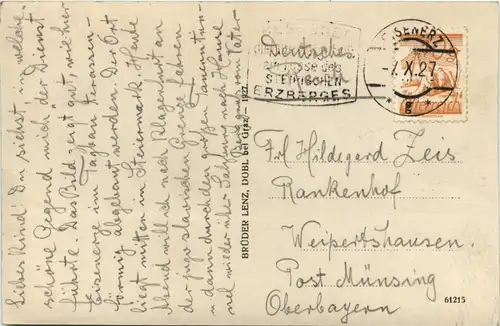 Liebes Kind! Du siehst in welche
schöne Gegend mich der Dienst
führte. Das Bild zeigt gut, wie hier
Eisenerze im Tagbau terassen-
förmig abgebaut werden. Der Ort
liegt mitten in Steiermark. Heute
Abend will ich nach Klagenfurt an
der jugoslavischen Grenze fahren
u dann durch den großen Tauerntun-
nel wieder über Salzburg nach Hause
Herzl. Gruß vom Vater
BRÜDER LENZ, DOBL bei Graz — 1927.
Deutsches
am Fusse des
STEIRISCHEN
ERZBERGES
EISENERZ
-7.X.27
* g *
Frl Hildegard Zeis
Rankenhof
Weipertshausen.
Post Münsing
Oberbayern
61215